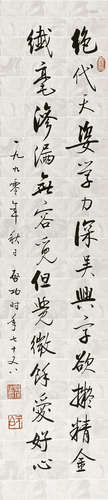 绝代大婆学力深吴兴字欲掷精金
纤毫渗漏无容觅但觉微馀爱好心
一九九零年秋日 启功时年七十又八